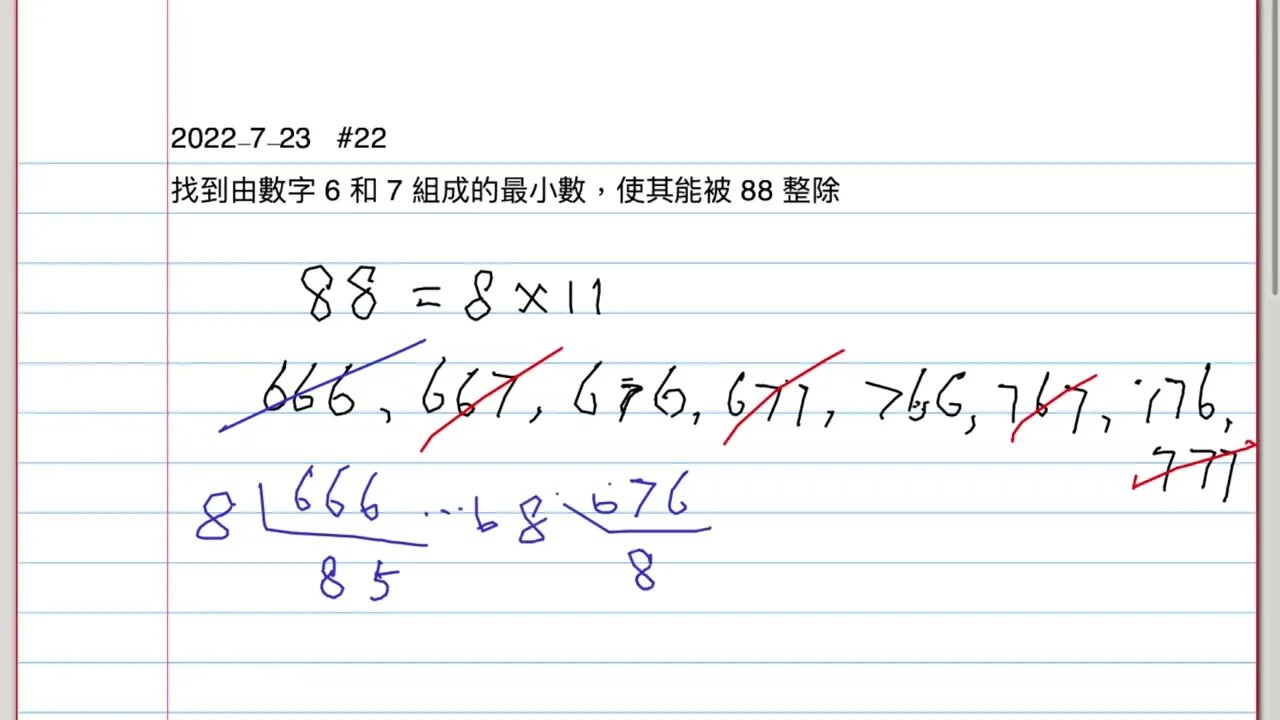 2022_7_23 #22
找到由數字 6 和 7 組成的最小數，使其能被 88 整除
88 = 8 × 11
666, 667, 676, 677, 766, 767, 776,
777
8 666 ...6 8 676
85 8